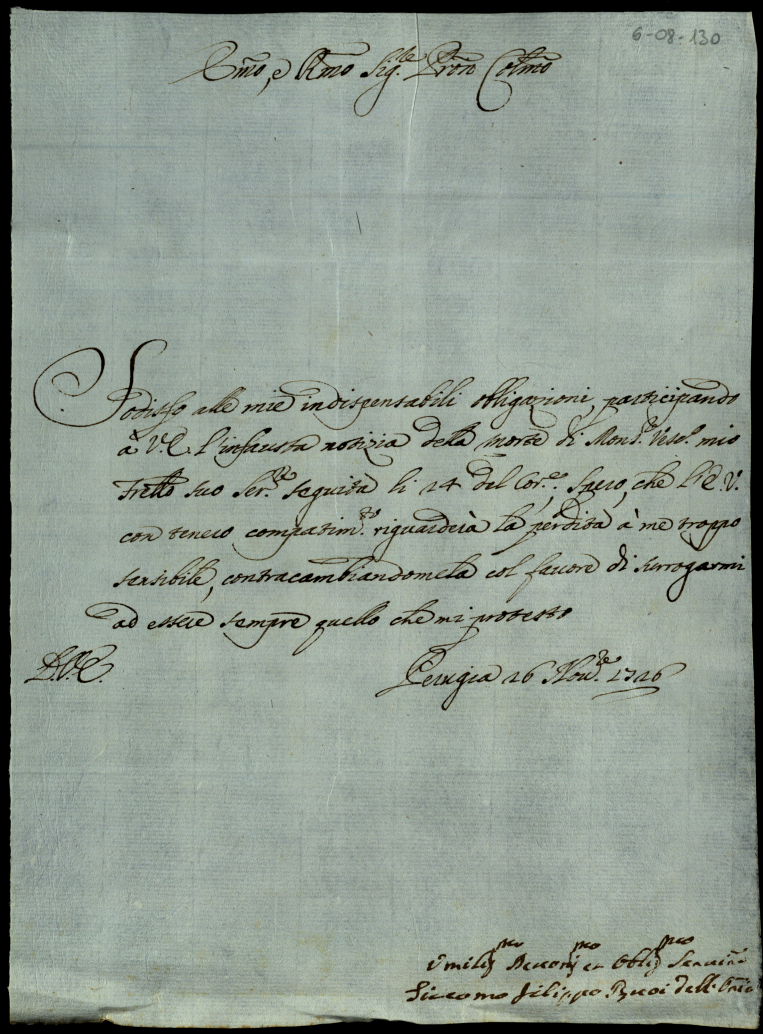 6-08-130
Emo, e Rmo Sig.re Pron Colmo
Sodisfo alle mie indispensabili obligazioni, participando
à V.E. l'infausta notizia della morte di Mons.r Vesc.o mio
frello suo Ser.re seguita li 24 del Cor.e, Spero, che l'E V.
con tenero compatim.to riguarderà la perdita à me troppo
sensibile, contracambiandomela col favore di surrogarmi
ad essere sempre quello che mi protesto
D.V.E.
Perugia 26 Nov.re 1726
Umiliss.mo Devoti.mo et Obblig.mo Servit.e
Giacomo Filippo